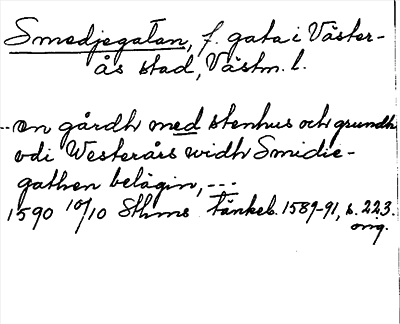 Smedjegatan, f. gata i Väster-
ås stad, Västm. l.
--en gårdh med stenhus och grundh
vdi Westerårs widh Smidie-
gathen belägin, ---
1590 10/10 Sthms Tänkeb. 1589-91, s. 223.
orig.